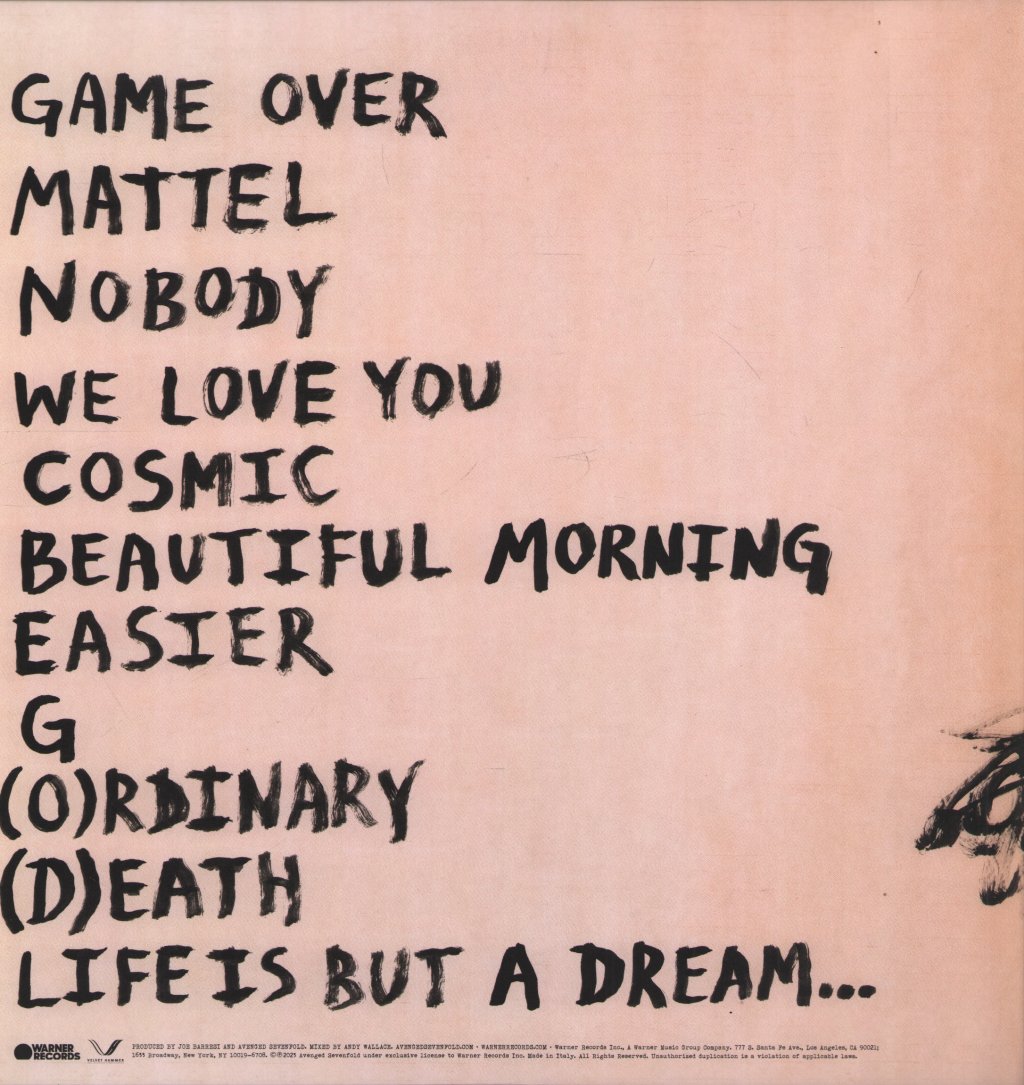 GAME OVER
MATTEL
NOBODY
WE LOVE YOU
COSMIC
BEAUTIFUL MORNING
EASIER
G
(O)RDINARY
(D)EATH
LIFE IS BUT A DREAM...
WARNER RECORDS
VELVET HAMMER
PRODUCED BY JOE BARRESI AND AVENGED SEVENFOLD. MIXED BY ANDY WALLACE. AVENGEDSEVENFOLD.COM · WARNERRECORDS.COM · Warner Records Inc., A Warner Music Group Company. 777 S. Santa Fe Ave., Los Angeles, CA 90021;
1633 Broadway, New York, NY 10019-6708. ©℗2023 Avenged Sevenfold under exclusive license to Warner Records Inc. Made in Italy. All Rights Reserved. Unauthorized duplication is a violation of applicable laws.